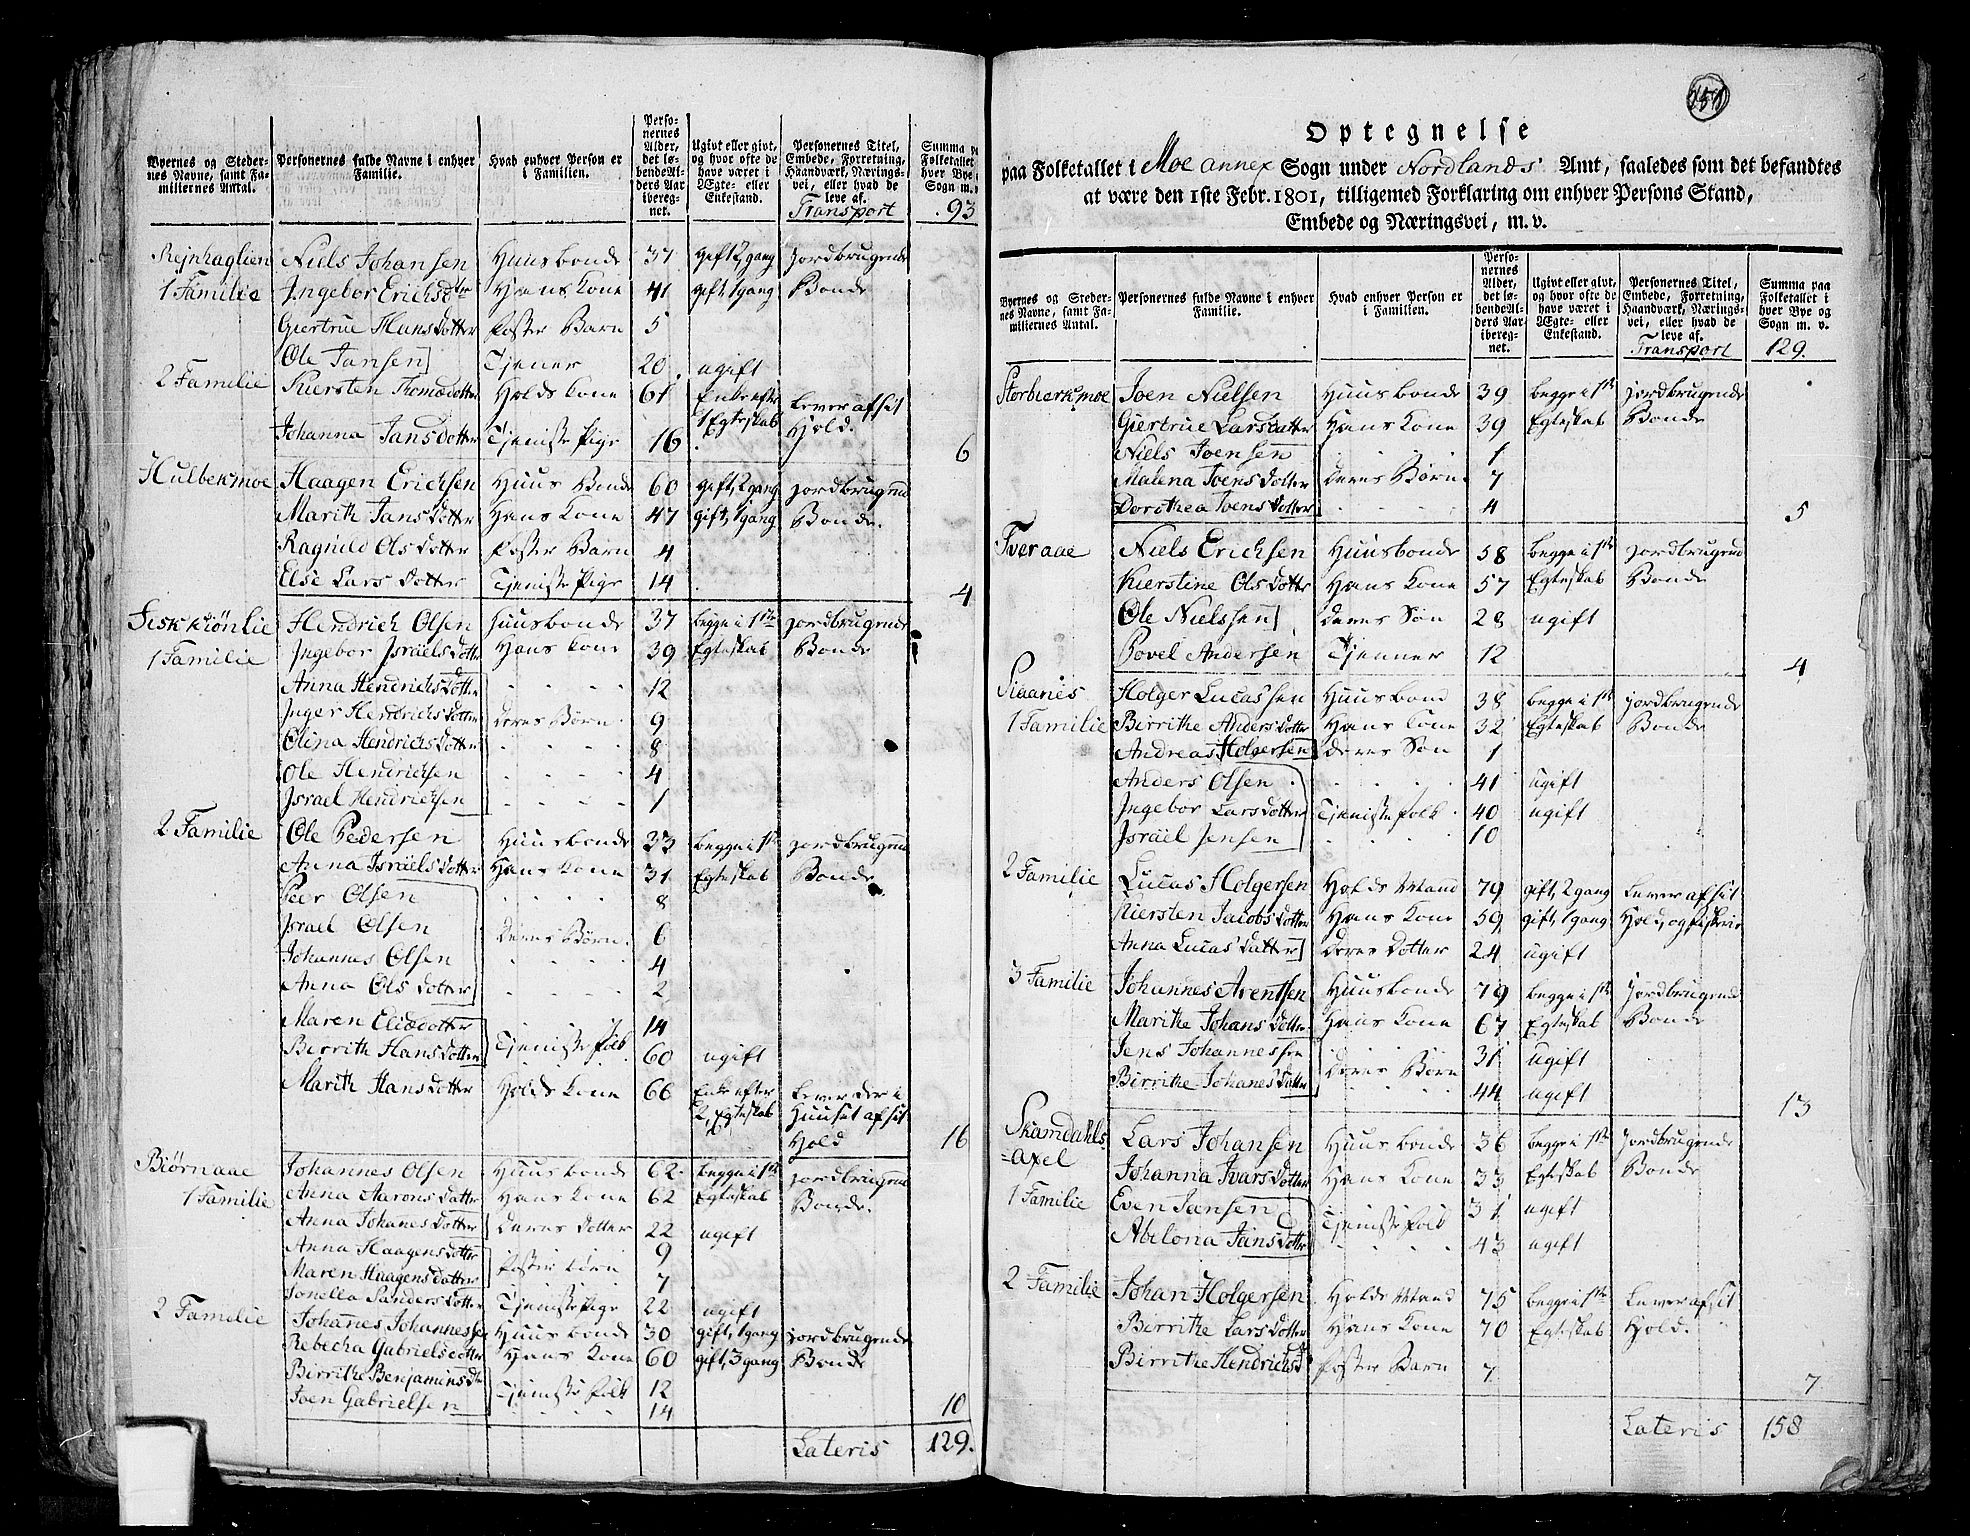 Byernes og Steder-
nes Navne, samt Fa-
miliernes Antal.
Personernes fulde Navne i enhver
Familie.
Hvad enhver Person er
i Familien.
Perso-
nernes
Alder,
det lø-
bende Al-
ders Aar
ibereg-
net.
Ugivt eller givt,
og hvor ofte de
have været i
Ægte- eller
Enkestand.
Personernes Titel,
Embede, Forretning,
Haandværk, Nærings-
vei, eller hvad de
leve af.
Summa
Folketallet
hver Bye
Sogn m. v.
Transport 93
Rejnhaglien Niels Johansen Huusbonde 37 gift 2, gang jordbrugende
1 Familie Ingebor Erichsdtr Hans Kone 41 gift, 1 gang Bonde
Giertrue HansDotter foster Barn 5
Ole Jansen] Tjener 20. ugift
2 Familie Kiersten Thomædotter Holds Kone 61 Enke efter Lever af sit
1 Egteskab Hold.
Johanna JansDotter Tjeniste Pige 16 6
Hulbekmoe Haagen Erichsen Huus Bonde 60 gift, 2 gang jordbrugend
Marith JansDotter Hans Kone 47 gift, 1 gang Bonde.
Ragnild OlsDotter foster Barn 4
Else LarsDotter Tjeniste Pige 14 4
Fiskkiønlie Hendrich Olsen Huusbonde 37 begge i 1ste jordbrugende
1 Familie Ingebor IsraelsDotter Hans Kone 39 Egteskab Bonde
Anna HendrichsDotter 12
Inger HendrichsDotter Deres Børn 9
Olina HendrichsDotter 8
Ole Hendrichsen 4
Israel Hendrichsen 1
2 Familie Ole Pedersen Huusbonde 33 begge i 1ste jordbrugend
Anna IsraelsDotter Hans Kone 31 Egteskab Bonde
Peer Olsen 8
Israel Olsen Deres Børn 6
Johannes Olsen 4
Anna OlsDotter 2
Maren Eliædotter 14
Birrith HansDotter Tjeniste folk 60 ugift
Marith HansDotter Holds Kone 66 Enke efter Lever der i
2, Egteskab Huuset af sit
Hold 16
Biørnaae Johannes Olsen Huusbonde 62 begge i 1ste jordbrugend
1 Familie Anna AaronsDatter Hans Kone 62 Egteskab Bonde.
Anna JohanesDotter Deres Dotter 22 ugift
Anna HaagensDotter 9
Maren Haagensdotter foster børn 7
Jonella SandersDotter Tjeniste Pige 22 ugift
2 Familie Johannes Johannessen Huusbonde 30 gift, 1 gang jordbrugende
Rebecha Gabrielsdotter Hans Kone 60 gift, 3 gang Bonde
Birrithe Benjaminsdtr Tjeniste folk 12
Joen Gabrielsen 14 10
Lateris 129.
Optegnelse
paa Folketallet i Moe annex Sogn under Nordlands Amt, saaledes som det befandtes
at være den 1ste Febr. 1801, tilligemed Forklaring om enhver Persons Stand,
Embede og Næringsvei, m. v.
Byernes og Steder-
nes Navne, samt Fa-
miliernes Antal.
Personernes fulde Navne i enhver
Familie.
Hvad enhver Person er
i Familien.
Perso-
nernes
Alder,
det lø-
bende Al-
ders Aar
ibereg-
net.
Ugivt eller givt,
og hvor ofte de
have været i
Ægte- eller
Enkestand.
Personernes Titel,
Embede, Forretning,
Haandværk, Nærings-
vei, eller hvad de
leve af.
Summa paa
Folketallet i
hver Bye og
Sogn m. v.
Transport 129.
Storbierkmoe Joen Nielsen Huusbonde 39 begge i 1ste jordbrugende
Giertrue LarsDatter Hans Kone 39 Egteskab Bonde
Niels Joensen 1
Malena JoensDotter Deres Børn 7
Dorothea JoensDotter 4 5
Tveraae Niels Erichsen Huusbonde 58 begge i 1ste jordbrugend
Kierstine OlsDotter Hans Kone 57 Egteskab Bonde
Ole Nielssen] Deres Søn 28 ugift
Povel Andersen Tjenner 12 4
Siaanes Holger Lucassen Huusbond 38 begge i 1ste jordbrugende
1 Familie Birrithe AndersDotter Hans Kone 32 Egteskab Bonde
Andreas Holgersen Deres Søn 1
Anders Olsen 41 ugift
Ingebor Larsdotter Tjeniste folk 40 ugift
Israel Jensen 10
2 Familie Lucas Holgersen Holds Mand 79 gift, 2 gang Lever af sit
Kiersten JacobsDotter Hans Kone 59 gift, 1 gang Hold, og fiskerie
Anna LucasDatter] Deres Dotter 24 ugift
3 Familie Johannes Arentsen Huusbonde 79 begge i 1ste jordbrugend
Marithe JohansDotter Hans Kone 67 Egteskab Bonde
Jens Johannessen Deres Børn 31 ugift
Birrithe JohanesDatter 44 ugift 13
Skamdahls
=axel Lars Johansen Huusbonde 36 begge i 1ste jordbrugende
Johanna IvarsDotter Hans Kone 33 Egteskab Bonde
1 Familie Even Jansen Tjeniste folk 31 ugift
Abelona JansDotter 43 ugift
2 Familie Johan Holgersen Holds Mand 75 begge i 1ste Lever af sit
Birrithe LarsDotter Hans Kone 70 Egteskab Hold.
Birrithe Hendrichsd foster Barn 7 7
Lateris 158